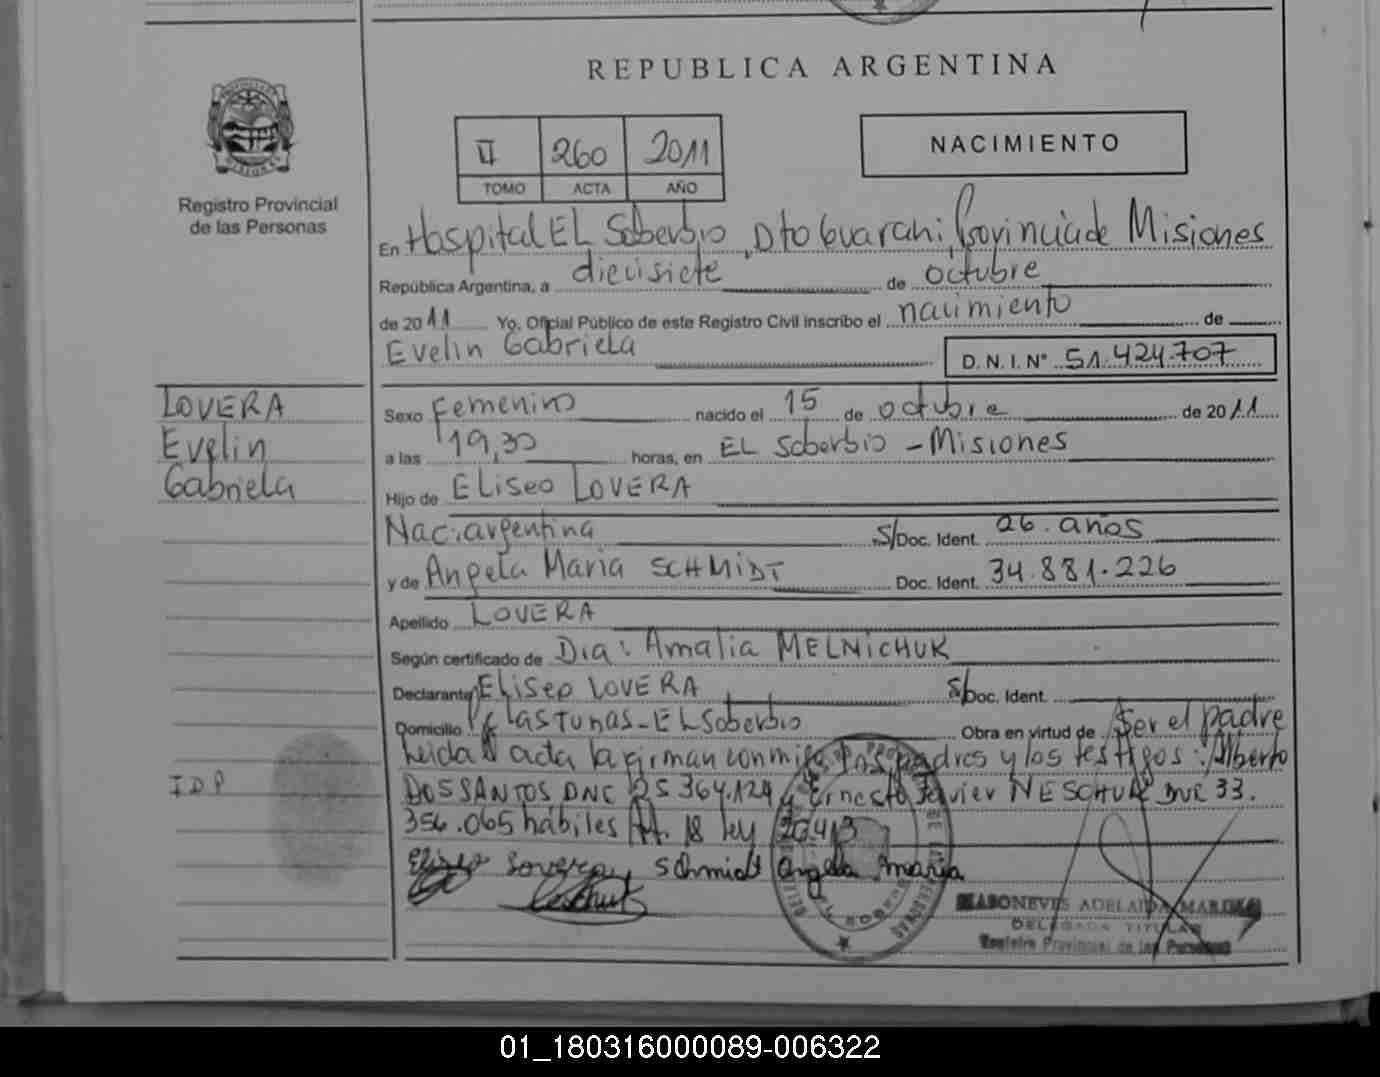 REPUBLICA ARGENTINA
II 260 2011
TOMO ACTA AÑO
NACIMIENTO
Registro Provincial
de las Personas
En Hospital EL Soberbio, Dto Guarani, Provincia de Misiones
República Argentina, a diecisiete de octubre
de 2011 Yo, Oficial Público de este Registro Civil inscribo el nacimiento de
Evelin Gabriela D. N. I. N° 51.424.707
LOVERA
Evelin
Gabriela
Sexo Femenino nacido el 15 de octubre de 2011
a las 19,30 horas, en EL Soberbio - Misiones
Hijo de ELiseo LOVERA
Nac: argentina S/Doc. Ident. 26. años
y de Angela Maria SCHMIDT Doc. Ident. 34.881.226
Apellido LOVERA
Según certificado de Dra: Amalia MELNICHUK
Declarante ELiseo LOVERA S/Doc. Ident.
Domicilio Las Tunas - EL Soberbio Obra en virtud de Ser el padre
Leida el acta la firman conmigo los padres y los testigos: Alberto
DOS SANTOS DNI 25.364.124 y Ernesto Javier NESCHUK DNI 33.
356.065 hábiles Art. 18 ley 20413
IDP
Eliseo Lovera Schmidt Angela Maria
ADELAIDA
DELEGADA TITULAR
Registro Provincial de las Personas
01_180316000089-006322